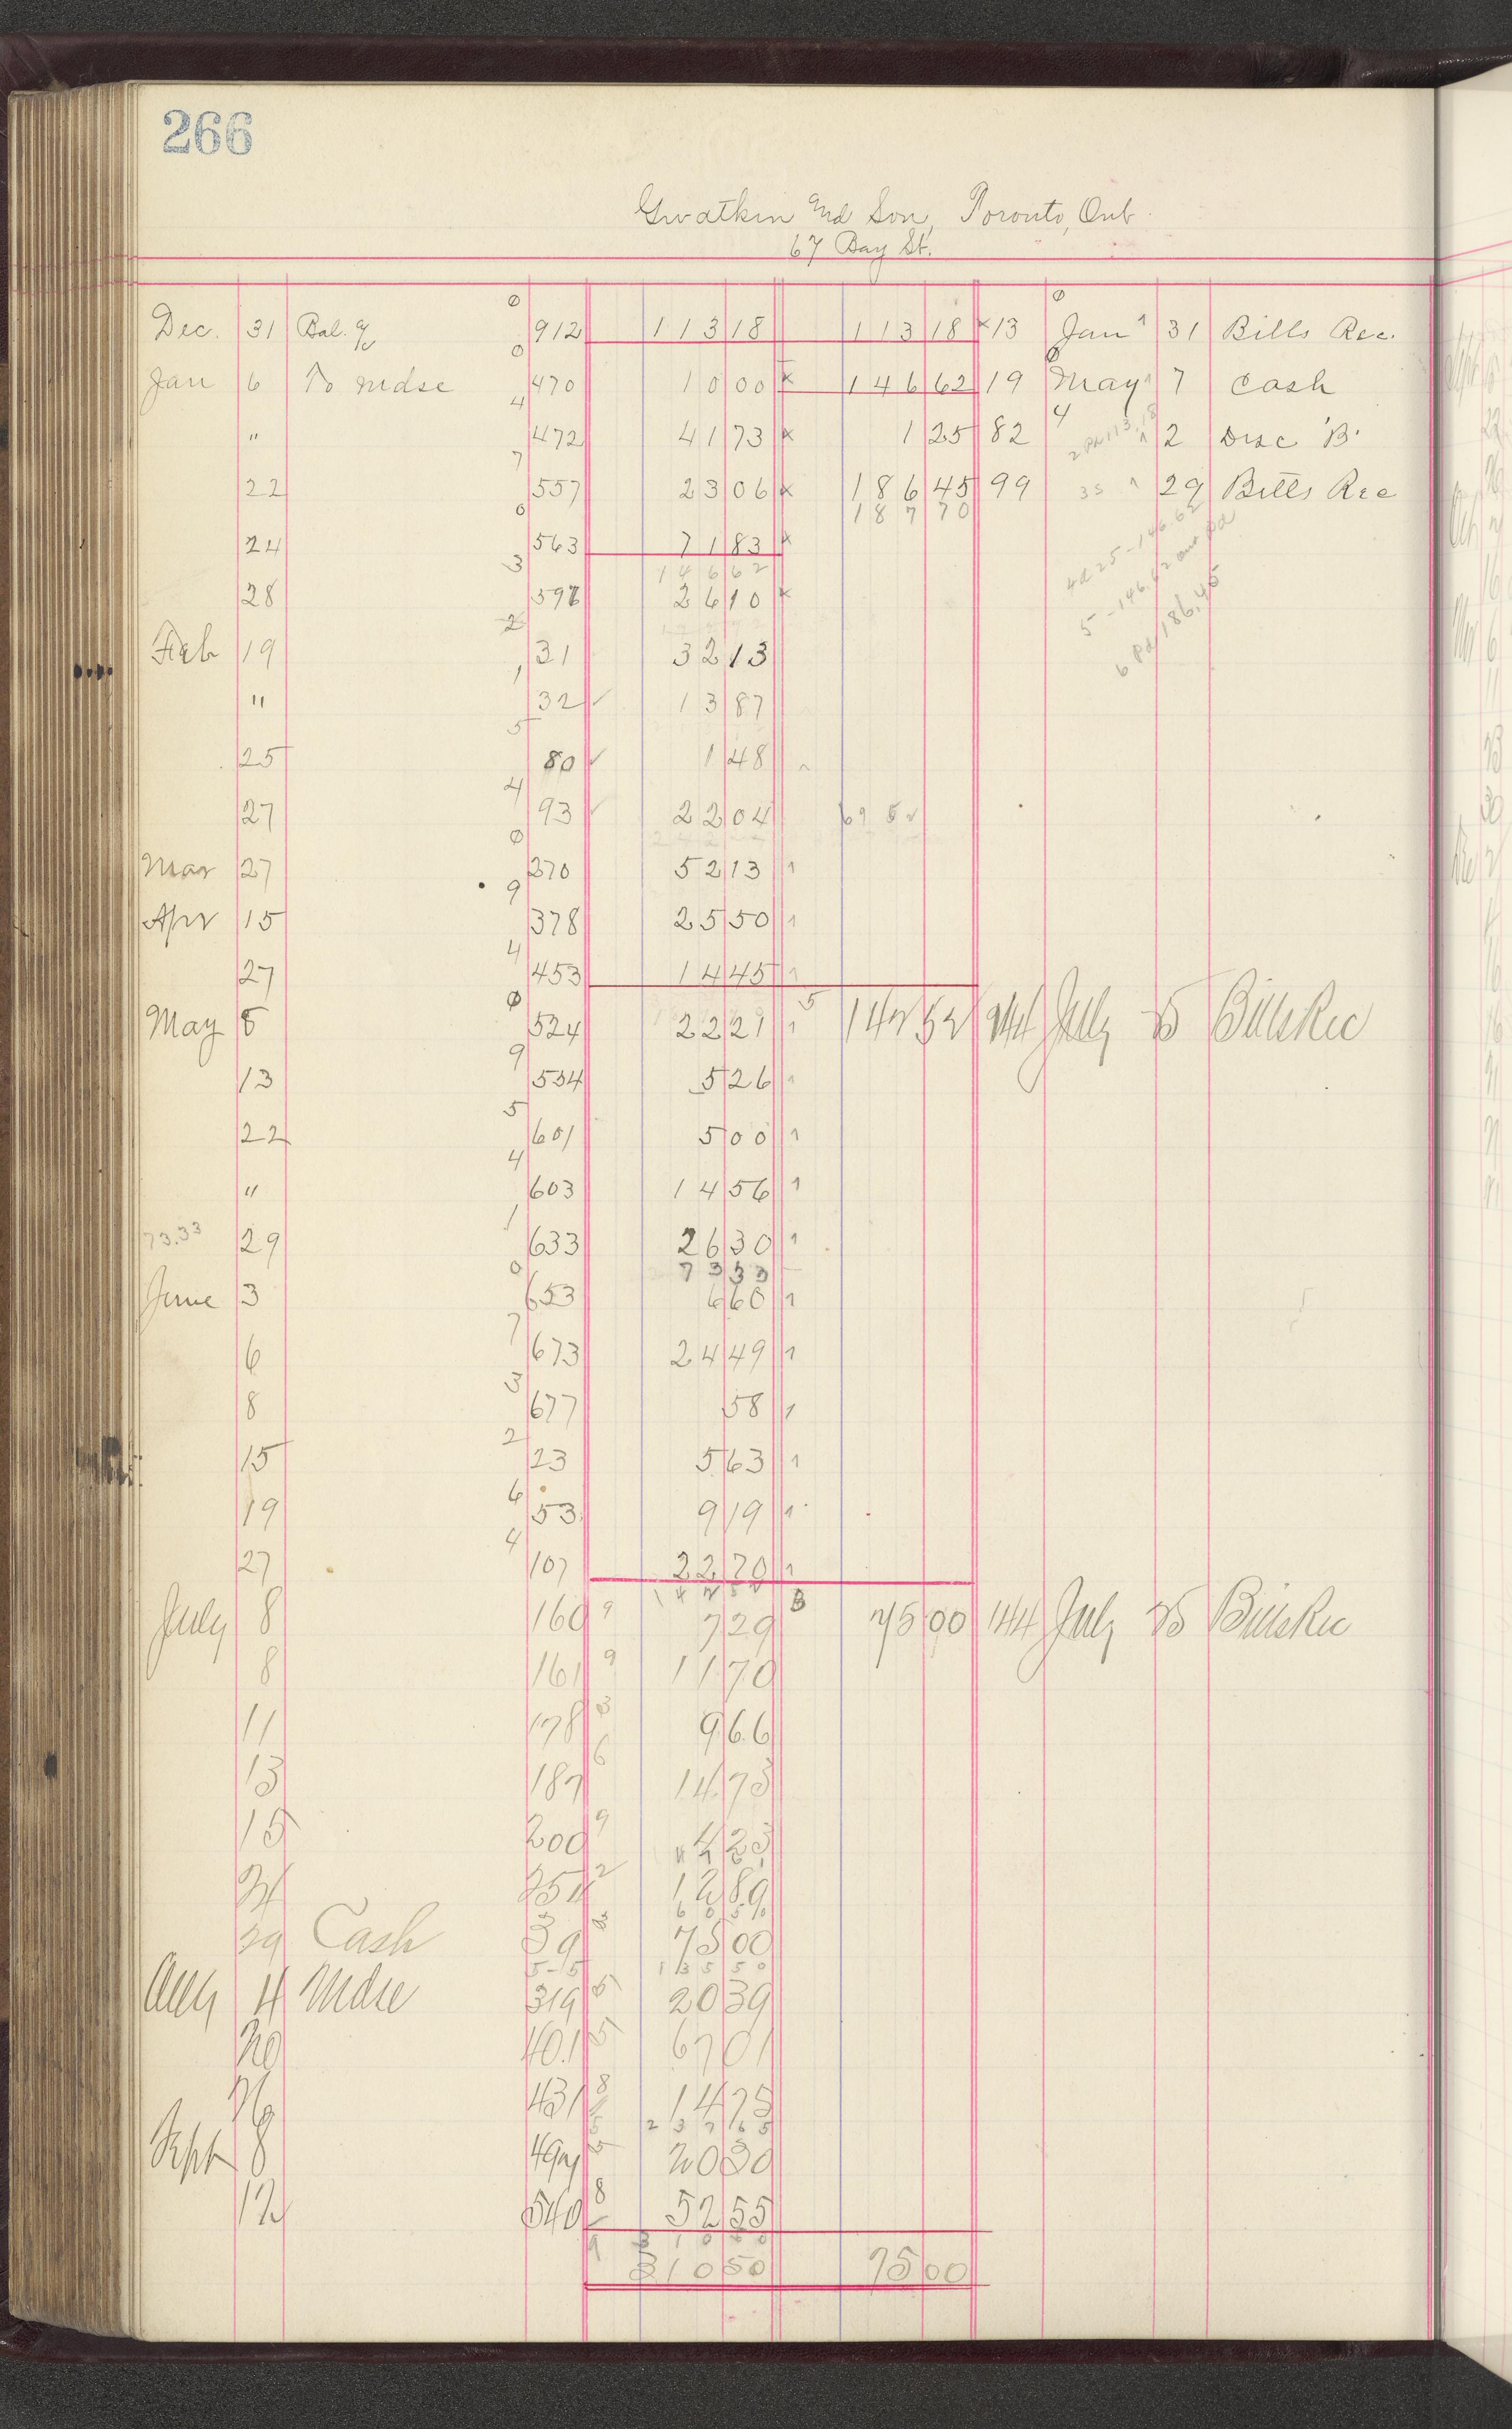 266
Gwatkin and Son, Toronto, Ont.
67 Bay St.
Dec. 31 Bal. 912 113 18 113 18 x 13 Jan 31 Bills Rec.
Jan 6 To mdse 470 10 00 x 146 62 19 May 7 Cash
" 472 41 73 x 1 25 82 2 Disc 'B'
22 557 23 06 x 186 45 99 29 Bills Rec
187 70
24 563 71 83 x
146 62
28 597 26 10 x
Feb 19 31 32 13
" 32 ✓ 13 87
25 80 ✓ 1 48
27 93 ✓ 22 04 69 52
Mar 27 270 52 13
Apr 15 378 25 50
27 453 14 45
May 8 524 22 21 142 52 144 July 25 Bills Rec
13 534 5 26
22 601 5 00
" 603 14 56
73.33 29 633 26 30
73 33
June 3 653 6 60
6 673 24 49
8 677 58
15 23 5 63
19 53 9 19
27 107 22 70
142 52
July 8 160 9 7 29 75 00 144 July 25 Bills Rec
8 161 9 11 70
11 178 3 9 66
13 187 6 14 73
15 200 9 4 23
21 254 2 12 89
60 50
29 Cash 39 3 75 00
135 50
Aug 4 Mdse 319 5 20 39
20 401 5 67 01
26 431 8 14 75
237 65
Sept 8 497 5 20 30
12 540 8 52 55
310 50
310 50 75 00